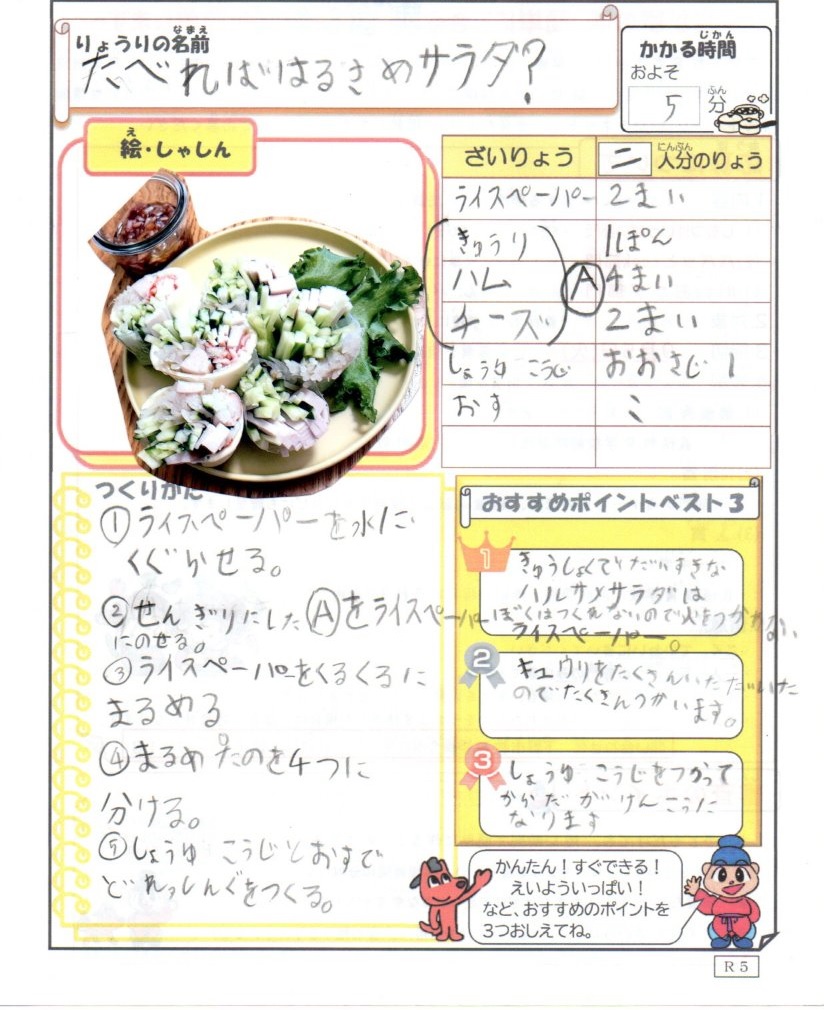 りょうりの名前
なまえ
たべればはるさめサラダ?
かかる時間
じかん
およそ
5分
ふん
絵・しゃしん
え
ざいりょう 二 人分のりょう
にんぶん
ライスペーパー 2まい
きゅうり 1ぽん
ハム A 4まい
チーズ 2まい
しょうゆ こうじ おおさじ 1
おす 〃
つくりかた
①ライスペーパーを水に
くぐらせる。
②せんぎりにしたⒶをライスペーパー
にのせる。
③ライスペーパーをくるくるに
まるめる
④まるめたのを4つに
分ける。
⑤しょうゆ こうじとおすで
どれっしんぐをつくる。
おすすめポイントベスト3
1
きゅうしょくでだいすきな
ハルサメサラダは
ぼくはつくれないので火をつかわない
ライスペーパー。
2
キュウリをたくさんいただいた
のでたくさんつかいます。
3
しょうゆ こうじをつかって
からだ がけんこうに
なります
かんたん!すぐできる!
えいよういっぱい!
など、おすすめのポイントを
3つおしえてね。
R5